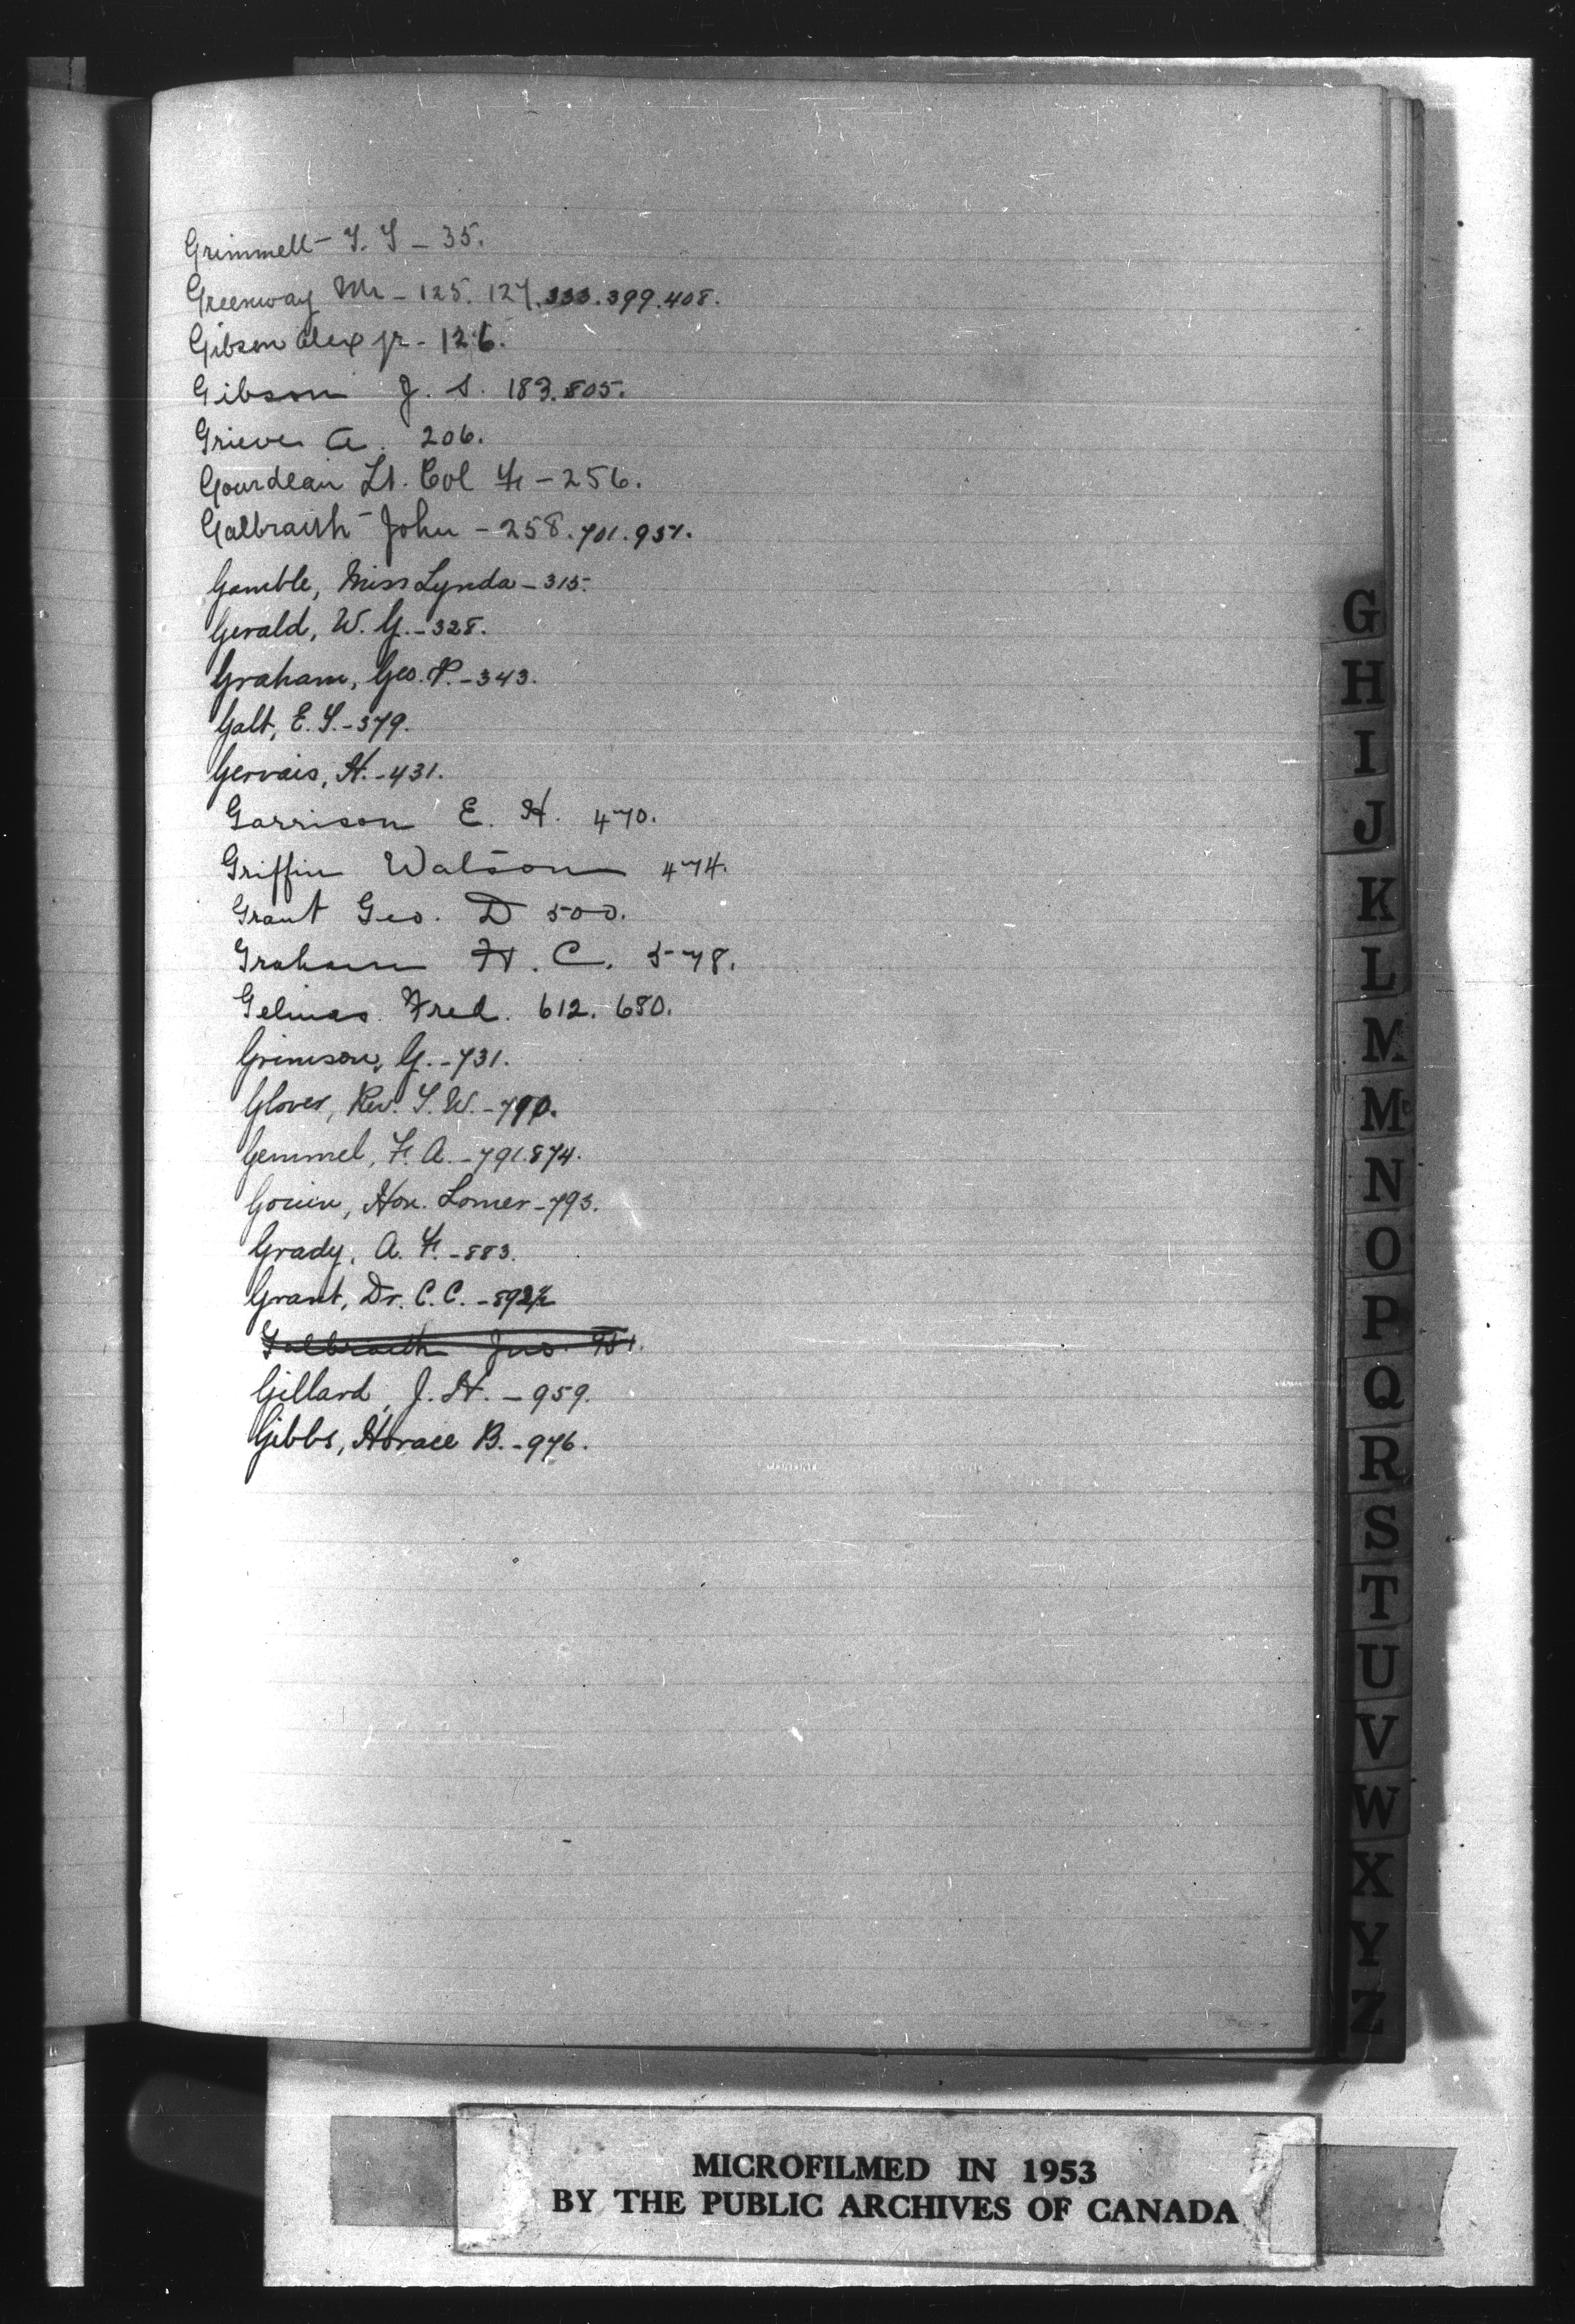 Grimmell T. T - 35.
Greenway Mr - 125. 127. 333. 399. 408.
Gibson Alex jr - 126.
Gibson J. S. 183. 805.
Grieve A. 206.
Gourdeau Lt. Col F - 256.
Galbraith John - 258. 701. 951.
Gamble, Miss Lynda - 315.
Gerald, W. G. - 328.
Graham, Geo. P. - 343.
Galt, E. T. - 379.
Gervais, H. - 431.
Garrison E. H. 470.
Griffin Watson 474.
Grant Geo. D 500.
Graham H. C. 578.
Gelinas Fred. 612. 680.
Grimson, G. - 731.
Glover, Rev. T. W. - 790.
Gemmel, F. A. - 791. 874.
Gouin, Hon. Lomer - 793.
Grady, A. F. - 883.
Grant, Dr. C. C. - 892½
Galbraith Jno. 951.
Gillard, J. H. - 959.
Gibbs, Horace B. - 976.
G
H
I
J
K
L
M
Mc
N
O
P
Q
R
S
T
U
V
W
X
Y
Z
MICROFILMED IN 1953
BY THE PUBLIC ARCHIVES OF CANADA